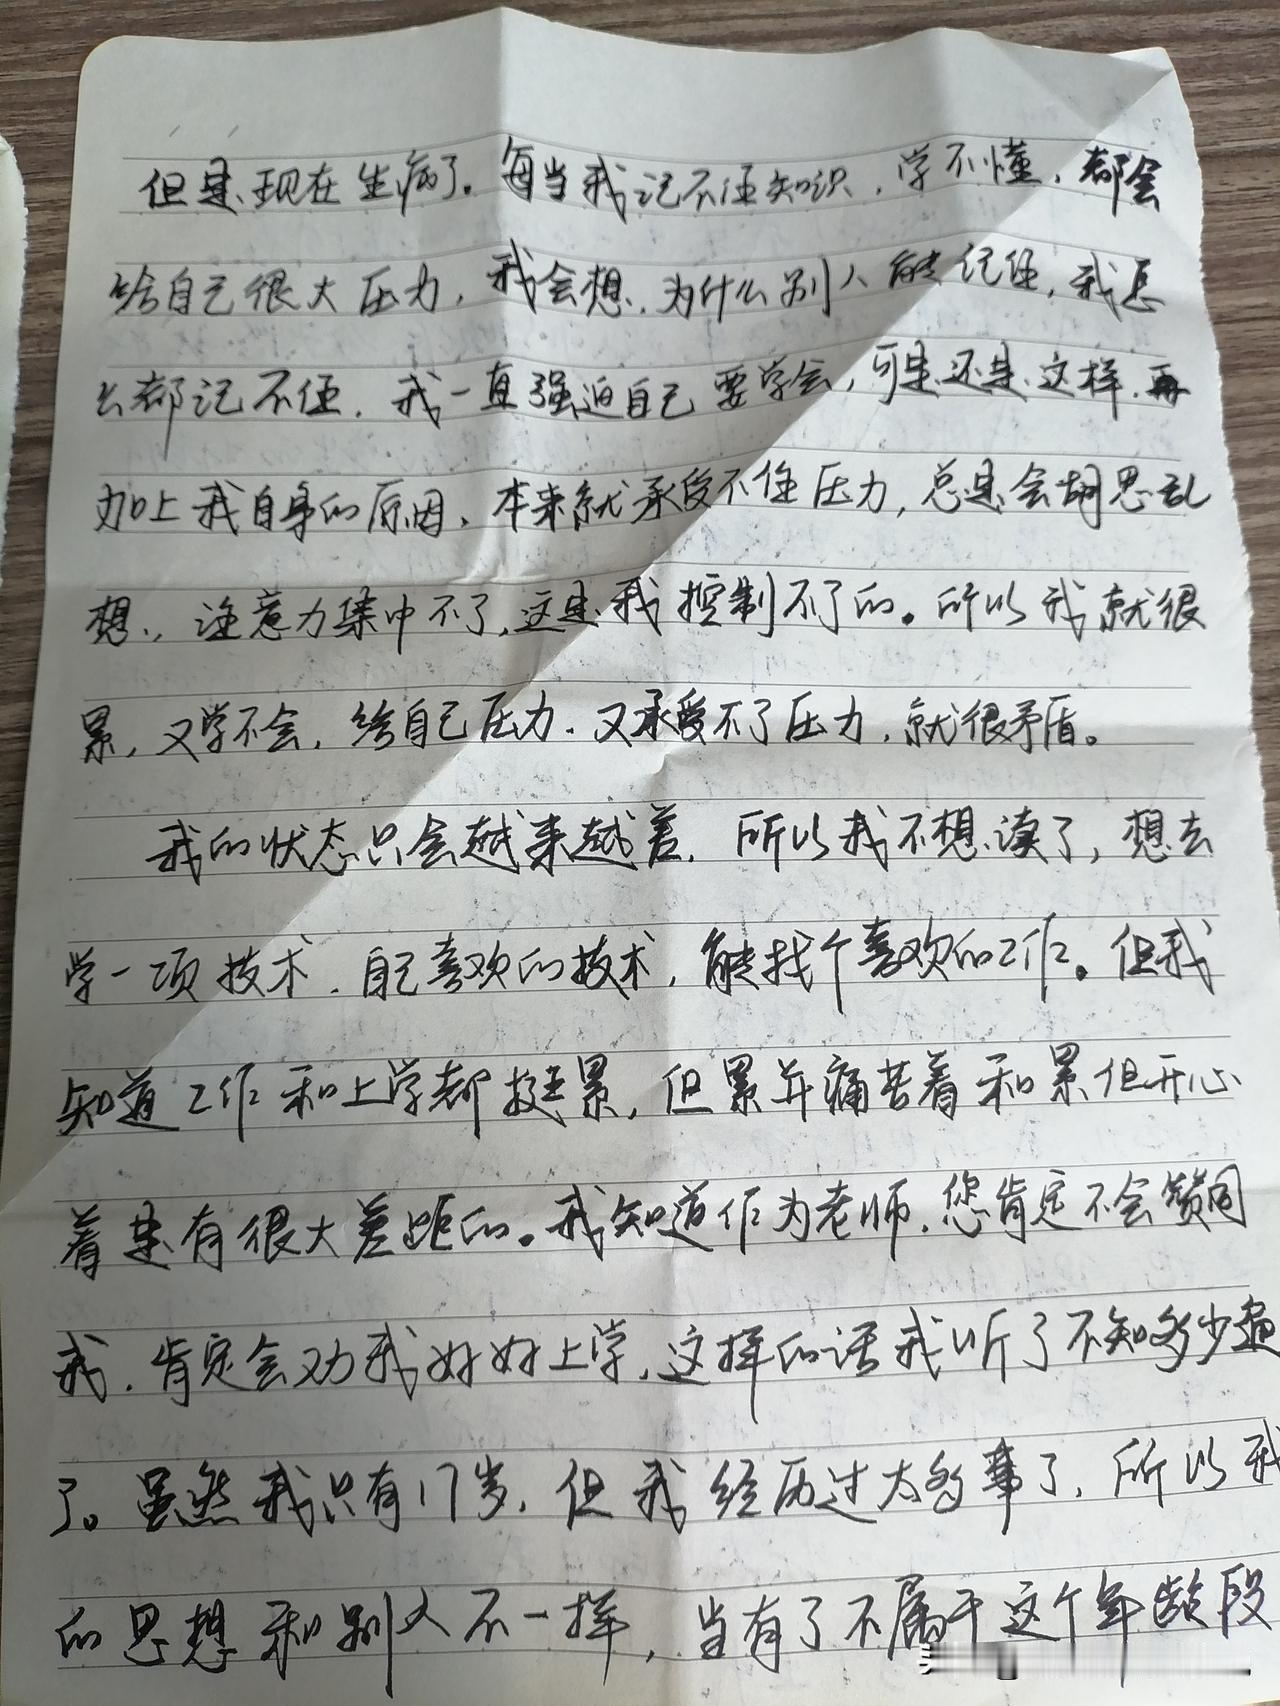 但是现在生病了。每当我记不住知识，学不懂，都会
给自己很大压力，我会想，为什么别人能记住，我怎
么都记不住，我一直强迫自己要学会，可是还是这样，再
加上我自身的原因，本来就承受不住压力，总是会胡思乱
想，注意力集中不了，这是我控制不了的。所以我就很
累，又学不会，给自己压力，又承受不了压力，就很矛盾。
我的状态只会越来越差，所以我不想读了，想去
学一项技术，自己喜欢的技术，能找个喜欢的工作。但我
知道工作和上学都挺累，但累并痛苦着和累但开心
着是有很大差距的。我知道作为老师，您肯定不会赞同
我，肯定会劝我好好上学，这样的话我听了不知多少遍
了。虽然我只有17岁，但我经历过太多事了，所以我
的思想和别人不一样，当有了不属于这个年龄段